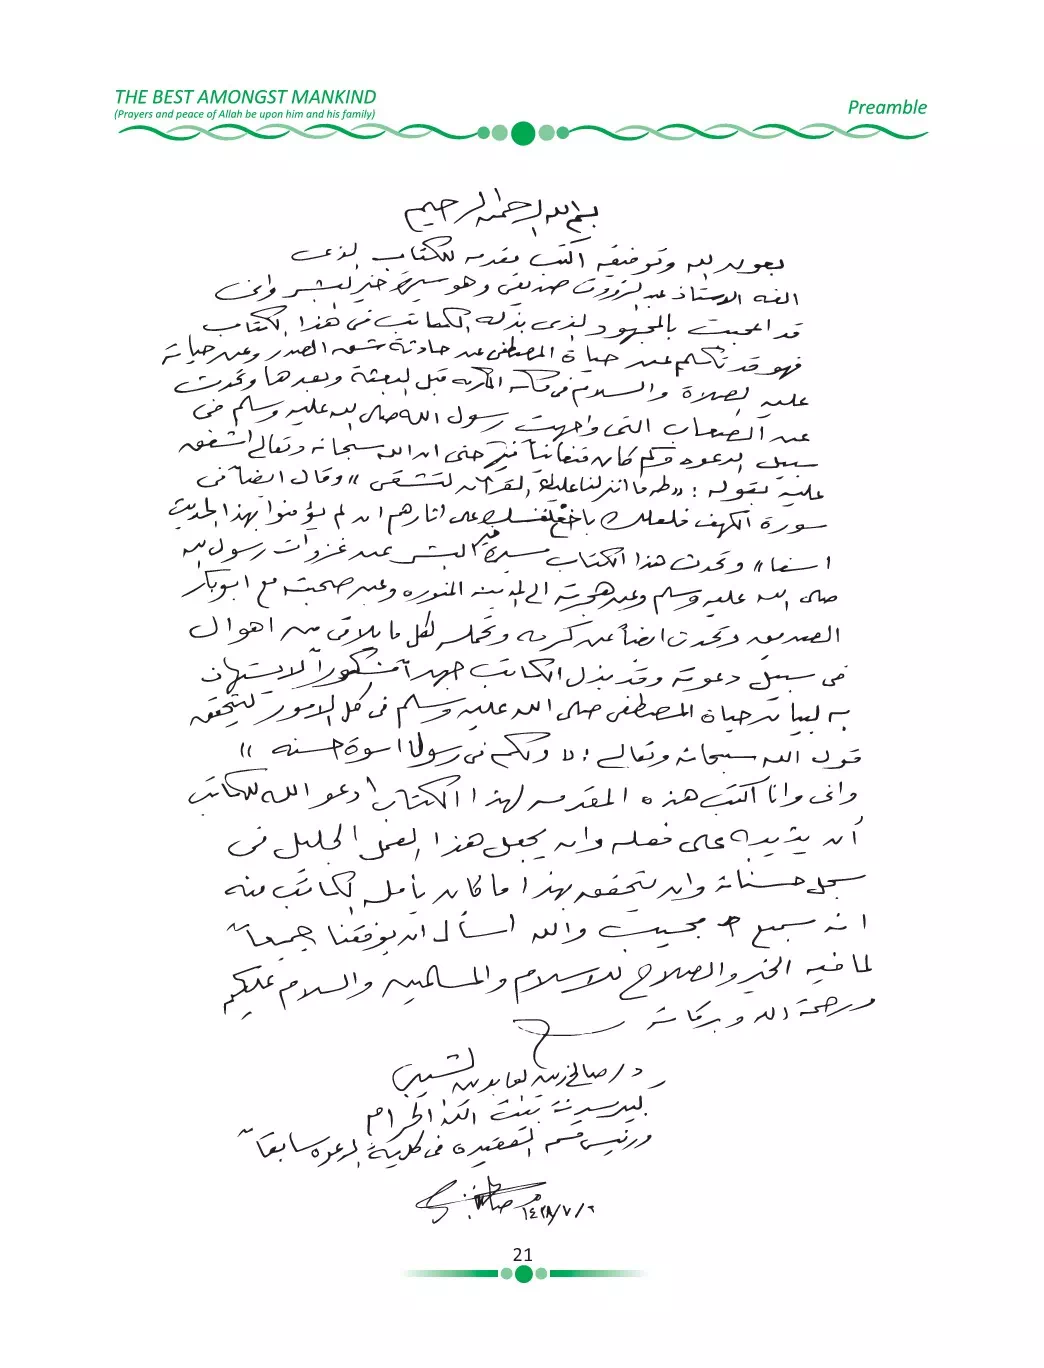 THE BEST AMONGST MANKIND
(Prayers and peace of Allah be upon him and his family)
Preamble
بسم الله الرحمن الرحيم
بعون الله وتوفيقه اكتب مقدمه للكتاب الذى
الفه الاستاذ عبد الرؤوف صديقى وهو سيرة خير البشر وانى
قد اعجبت بالمجهود الذى بذله الكاتب فى هذا الكتاب
فهو قد تكلم عن حياة المصطفى عن حادثة شق الصدر وعن حياته
عليه الصلاة والسلام فى مكه المكرمه قبل البعثة وبعدها وتحدث
عن الصعاب التى واجهت رسول الله صلى الله عليه وسلم فى
سبيل الدعوه وكم كان متفانياً حتى ان الله سبحانه وتعالى اشفق
عليه بقوله : «طه ما انزلنا عليك القرآن لتشقى» وقال ايضاً فى
سورة الكهف فلعلك باخع نفسك على اثارهم ان لم يؤمنوا بهذا الحديث
اسفا» وتحدث هذا الكتاب سيرة خير البشر عن غزوات رسول الله
صلى الله عليه وسلم وعن هجرته الى المدينه المنوره وعن صحبته مع ابوبكر
الصديق وتحدث ايضاً عن كرمه وتحمله لكل ما يلاقى من اهوال
فى سبيل دعوته وقد بذل الكاتب جهداً مشكوراً
به لبيان حياة المصطفى صلى الله عليه وسلم فى كل الامور ليتحقق
قول الله سبحانه وتعالى : ولكم فى رسول اسوة حسنه »
وانى وانا اكتب هذه المقدمه لهذا الكتاب ادعو الله للكاتب
أن يثيبه على فعله وان يجعل هذا العمل الجليل فى
سجل حسناته وان يتحقق بهذا ما كان يأمله الكاتب منه
انه سميع مجيب والله اسأل ان يوفقنا جميعاً
لما فيه الخير والصلاح للاسلام والمسلمين والسلام عليكم
ورحمة الله وبركاته
د/ صالح زين العابدين الشيبى
كبير سدنة بيت الله الحرام
ورئيس قسم العقيده فى كلية الدعوه سابقاً
١٤٢٨/٧/٢
21